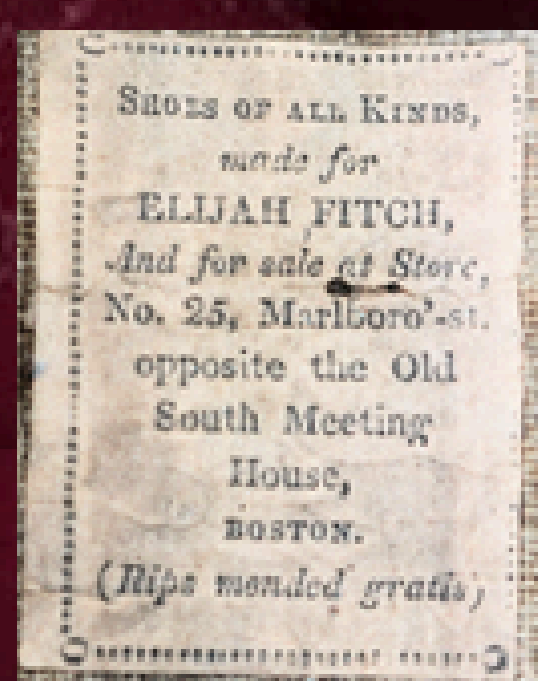 SHOES OF ALL KINDS,
made for
ELIJAH FITCH,
And for sale at Store,
No. 25, Marlboro'-st.
opposite the Old
South Meeting
House,
BOSTON.
(Rips mended gratis)